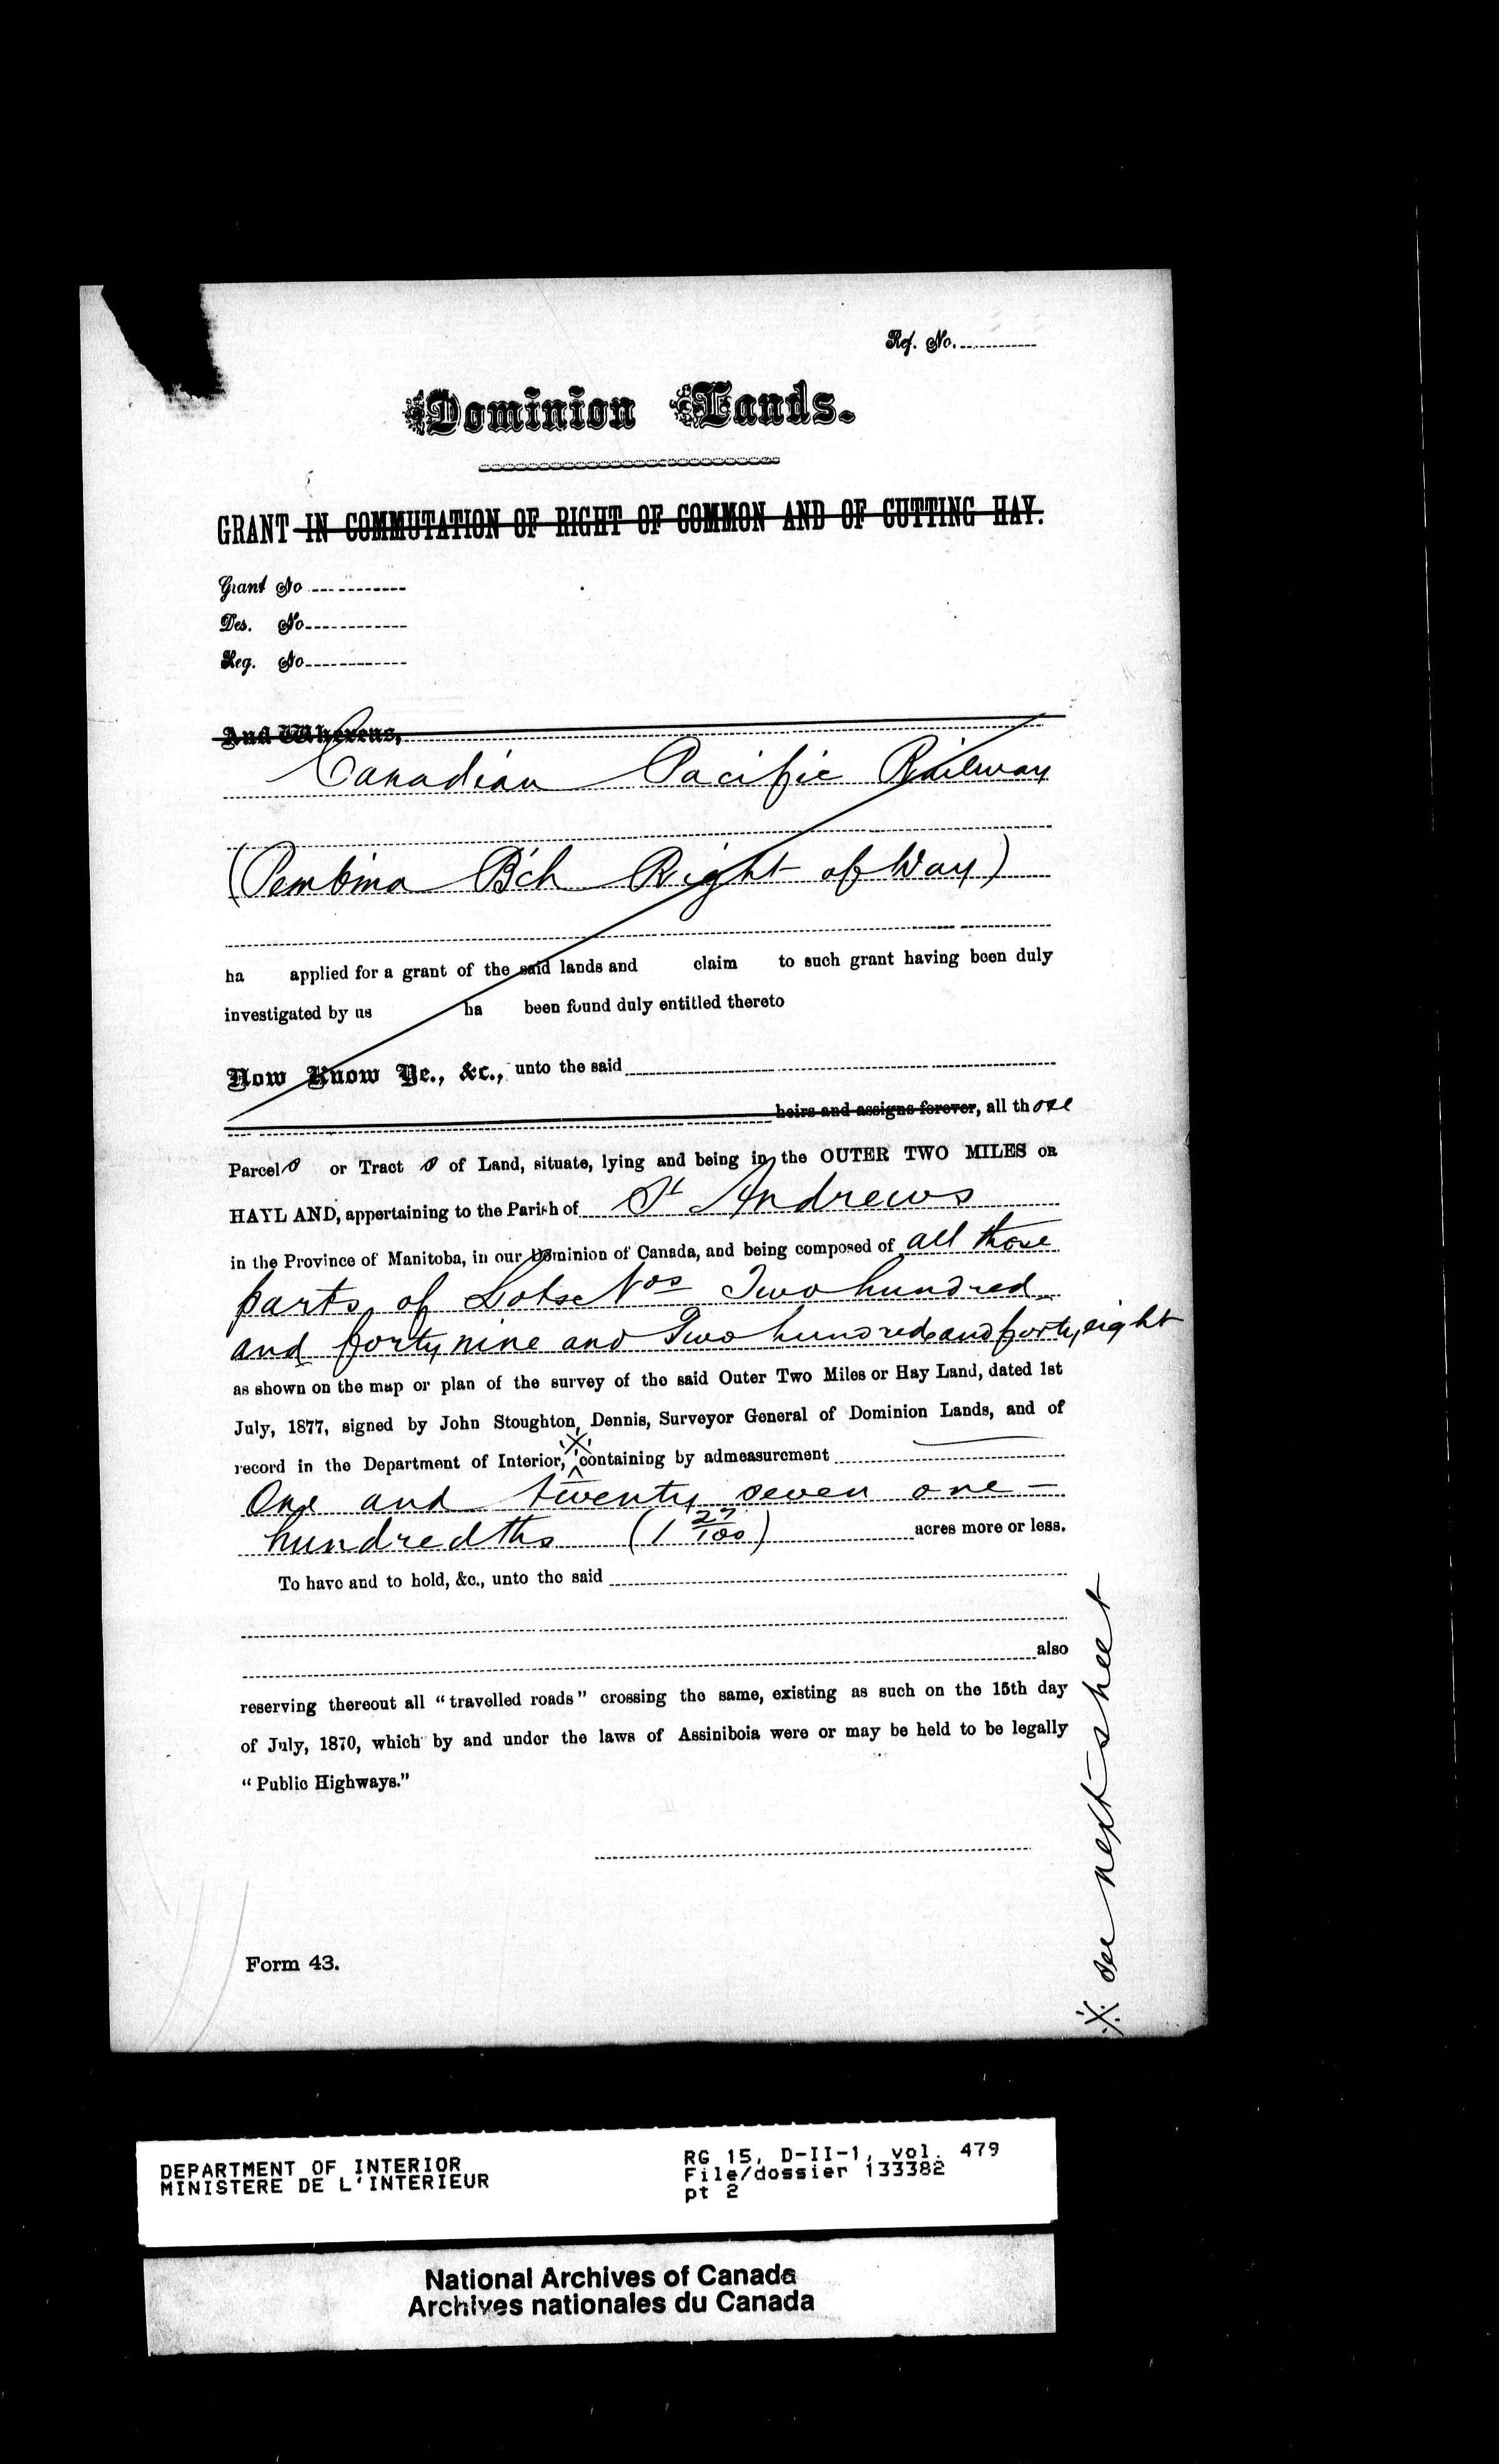 Ref. No.
Dominion Lands.
GRANT IN COMMUTATION OF RIGHT OF COMMON AND OF CUTTING HAY.
Grant No
Des. No
Reg. No
And Whereas,
Canadian Pacific Railway
(Pembina B'ch Right of Way)
ha applied for a grant of the said lands and claim to such grant having been duly
investigated by us ha been found duly entitled thereto
Now Know Ye., &c., unto the said
heirs and assigns forever, all those
Parcels or Tracts of Land, situate, lying and being in the OUTER TWO MILES OR
HAYLAND, appertaining to the Parish of St Andrews
in the Province of Manitoba, in our Dominion of Canada, and being composed of all those
parts of Lots Nos Two hundred
and forty nine and Two hundred and forty eight
as shown on the map or plan of the survey of the said Outer Two Miles or Hay Land, dated 1st
July, 1877, signed by John Stoughton, Dennis, Surveyor General of Dominion Lands, and of
record in the Department of Interior, ※ containing by admeasurement
One and twenty seven one-
hundredths (1 27/100) acres more or less.
To have and to hold, &c., unto the said
also
reserving thereout all "travelled roads" crossing the same, existing as such on the 15th day
of July, 1870, which by and under the laws of Assiniboia were or may be held to be legally
"Public Highways."
※ see next sheet
Form 43.
DEPARTMENT OF INTERIOR
MINISTERE DE L'INTERIEUR
RG 15, D-II-1, vol. 479
File/dossier 133382
pt 2
National Archives of Canada
Archives nationales du Canada